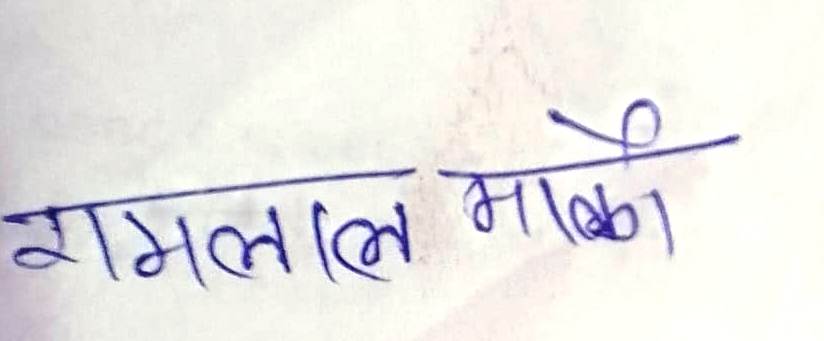 रामलाल मार्को